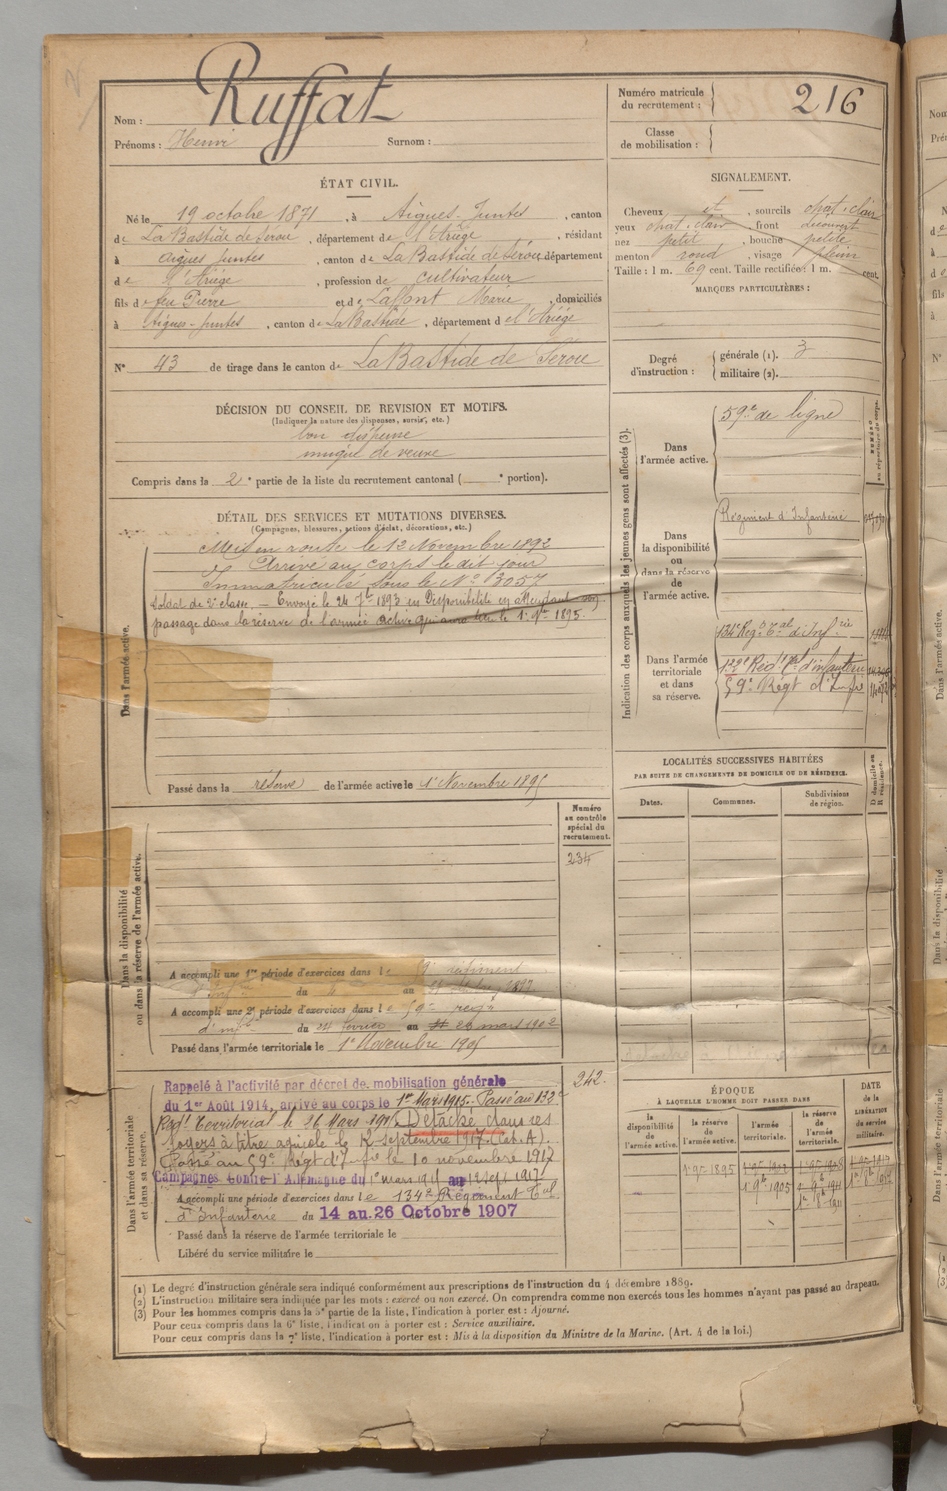 Nom : Ruffat
Prénoms : Henri Surnom :
Numéro matricule du recrutement : 216
Classe de mobilisation :
ÉTAT CIVIL.
Né le 19 octobre 1871, à Aigues-Juntes, canton
de La Bastide de Sérou, département de l'Ariège, résidant
à Aigues Juntes, canton de La Bastide de Sérou département
de l'Ariège, profession de cultivateur
fils de feu Pierre et de Laffont Marie, domiciliés
à Aigues-Juntes, canton de La Bastide, département de l'Ariège
N° 43 de tirage dans le canton de La Bastide de Sérou
SIGNALEMENT.
Cheveux et, sourcils chat. clair
yeux chat. clair, front découvert
nez petit, bouche petite
menton rond, visage plein
Taille : 1 m. 69 cent. Taille rectifiée : 1 m. cent.
MARQUES PARTICULIÈRES :
Degré d'instruction : générale (1). 3
militaire (2).
DÉCISION DU CONSEIL DE REVISION ET MOTIFS.
(Indiquer la nature des dispenses, sursis, etc.)
bon dispensé
unique de veuve
Compris dans la 2e partie de la liste du recrutement cantonal ( e portion).
DÉTAIL DES SERVICES ET MUTATIONS DIVERSES.
(Campagnes, blessures, actions d'éclat, décorations, etc.)
Dans l'armée active.
Mis en route le 12 Novembre 1892
Arrivé au corps le dit jour
Immatriculé sous le N° 3057
Soldat de 2e classe. — Envoyé le 24 7bre 1893 en Disponibilité en attendant son
passage dans la réserve de l'armée active qui aura lieu le 1er 9bre 1895.
Passé dans la réserve de l'armée active le 1er Novembre 1895
Indication des corps auxquels les jeunes gens sont affectés (3).
NUMÉRO au répertoire du corps.
Dans l'armée active.
59e de ligne
Dans la disponibilité ou dans la réserve de l'armée active.
Régiment d'Infanterie
Dans l'armée territoriale et dans sa réserve.
134e Reg. Tal d'Inf.rie
132e Régt Tal d'infanterie
59e Régt d'Infie
LOCALITÉS SUCCESSIVES HABITÉES
PAR SUITE DE CHANGEMENTS DE DOMICILE OU DE RÉSIDENCE.
Dates. Communes. Subdivisions de région. D domicile ou R résidence.
Dans la disponibilité ou dans la réserve de l'armée active.
Numéro au contrôle spécial du recrutement.
234
A accompli une 1re période d'exercices dans le 59e régiment
d'Inf. du au 1897
A accompli une 2e période d'exercices dans le 59e regt
d'infie du 24 février au 26 mars 1902
Passé dans l'armée territoriale le 1er Novembre 1905
Dans l'armée territoriale et dans sa réserve.
242
Rappelé à l'activité par décret de mobilisation générale
du 1er Août 1914, arrivé au corps le 1er Mars 1915. Passé au 132e
Regt Territorial le 26 Mars 1915. Détaché dans ses
foyers à titre agricole le 12 septembre 1917. (Cat. A).
Passé au 59e Régt d'Infie le 10 novembre 1917
Campagnes contre l'Allemagne du 1er mars 1915 au 12 sept 1917
A accompli une période d'exercices dans le 134e Régiment Tal
d'Infanterie du 14 au 26 Octobre 1907
Passé dans la réserve de l'armée territoriale le
Libéré du service militaire le
ÉPOQUE
À LAQUELLE L'HOMME DOIT PASSER DANS
la disponibilité de l'armée active. la réserve de l'armée active. l'armée territoriale. la réserve de l'armée territoriale.
DATE de la LIBÉRATION du service militaire.
1er 9bre 1895
1er 9bre 1905
(1) Le degré d'instruction générale sera indiqué conformément aux prescriptions de l'instruction du 4 décembre 1889.
(2) L'instruction militaire sera indiquée par les mots : exercé ou non exercé. On comprendra comme non exercés tous les hommes n'ayant pas passé au drapeau.
(3) Pour les hommes compris dans la 5e partie de la liste, l'indication à porter est : Ajourné.
Pour ceux compris dans la 6e liste, l'indication à porter est : Service auxiliaire.
Pour ceux compris dans la 7e liste, l'indication à porter est : Mis à la disposition du Ministre de la Marine. (Art. 4 de la loi.)